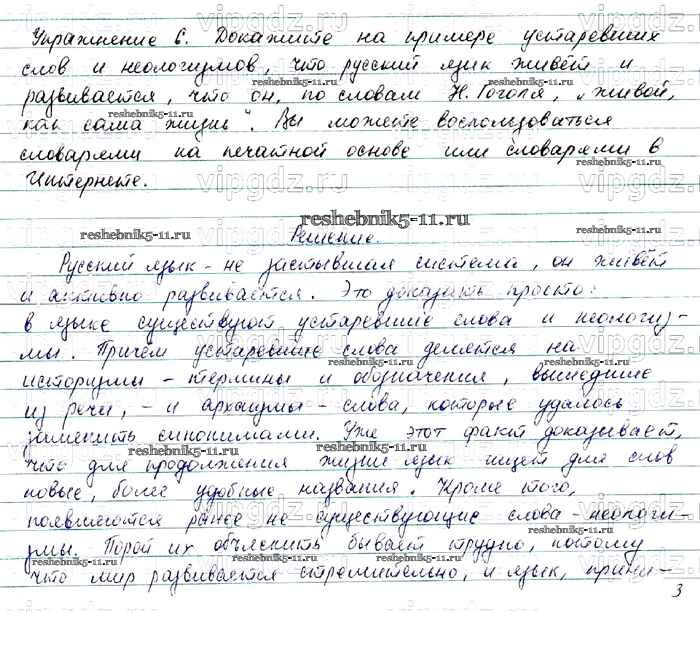 Упражнение 6. Докажите на примере устаревших
слов и неологизмов, что русский язык живёт и
развивается, что он, по словам Н. Гоголя, „живой,
как сама жизнь". Вы можете воспользоваться
словарями на печатной основе или словарями в
Интернете.
reshebnik5-11.ru
Решение.
Русский язык - не застывшая система, он живёт
и активно развивается. Это доказать просто:
в языке существуют устаревшие слова и неологиз-
мы. Причём устаревшие слова делятся на
историзмы - термины и обозначения, вышедшие
из речи, - и архаизмы - слова, которые удалось
заменить синонимами. Уже этот факт доказывает,
что для продолжения жизни язык ищет для слов
новые, более удобные названия. Кроме того,
появляются ранее не существующие слова неологи-
змы. Порой их объяснить бывает трудно, потому
что мир развивается стремительно, и язык, прини-
3